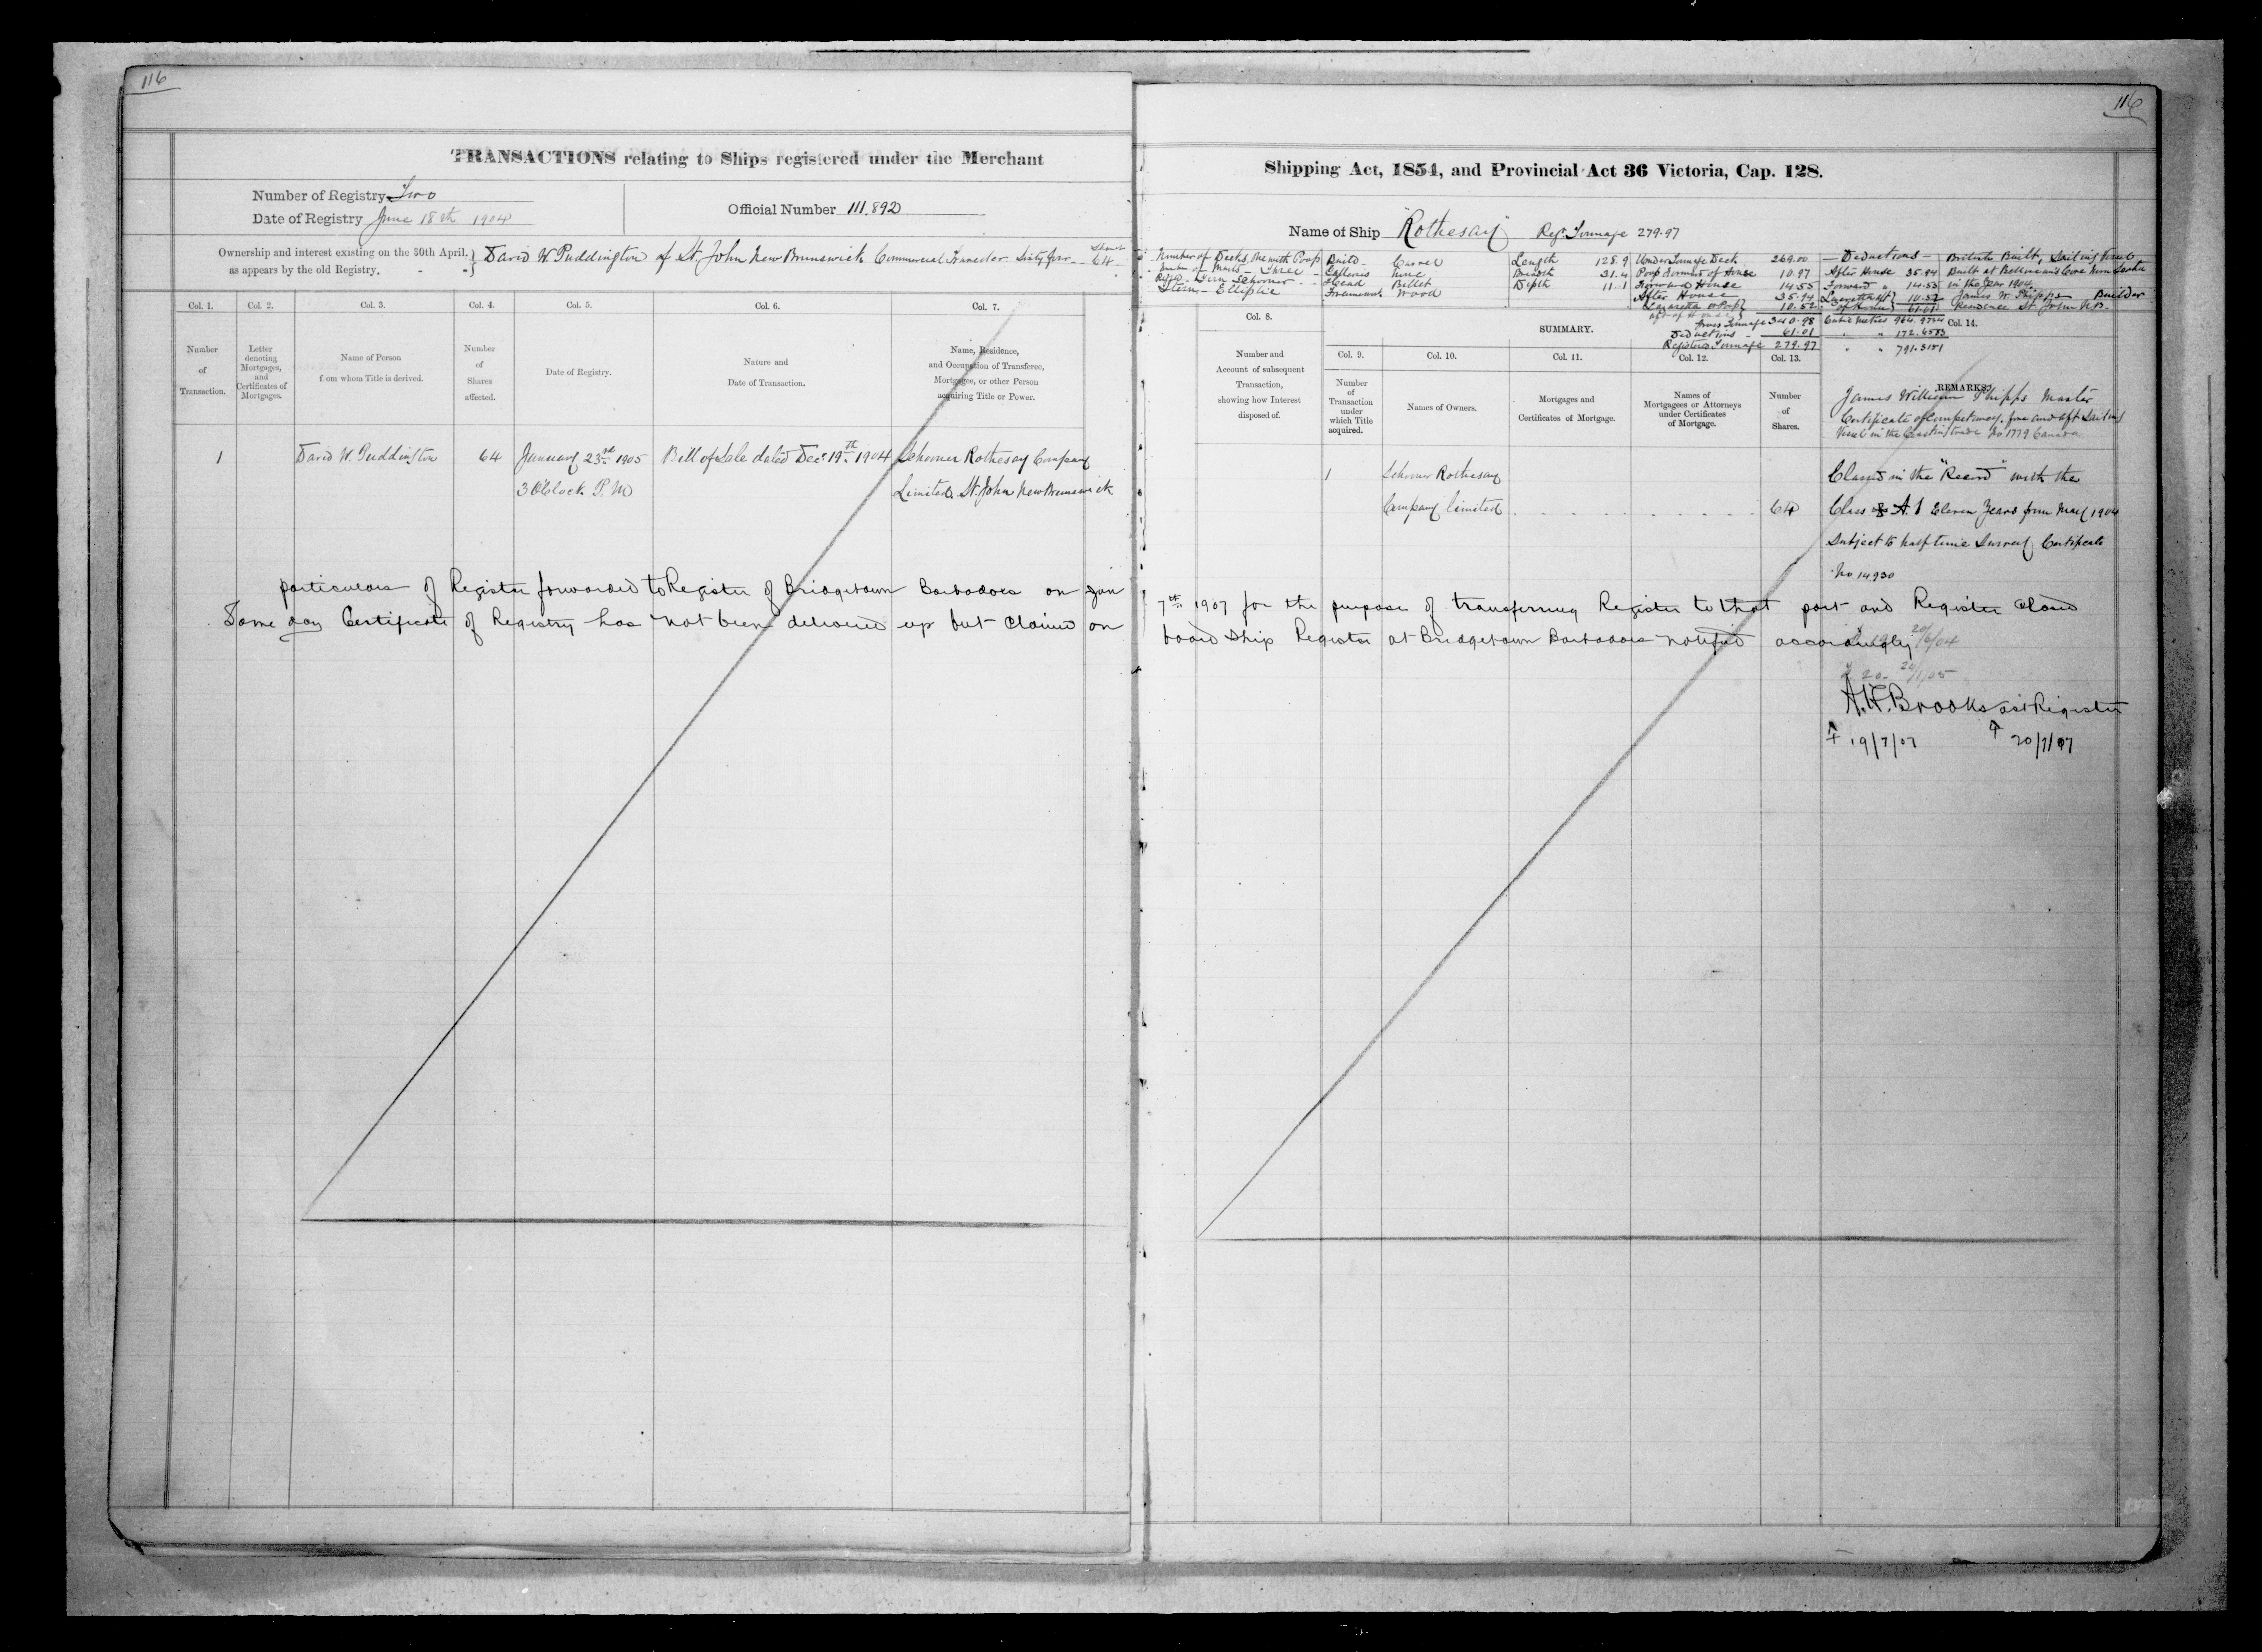 116
TRANSACTIONS relating to Ships registered under the Merchant
Number of Registry Two
Date of Registry June 18th 1904
Official Number 111.892
Ownership and interest existing on the 30th April.
as appears by the old Registry. - -
David W. Puddington of St. John New Brunswick Commercial Traveler Sixty four - 64
Col. 1. Col. 2. Col. 3. Col. 4. Col. 5. Col. 6. Col. 7.
Number of Transaction.
Letter denoting Mortgages, and Certificates of Mortgages.
Name of Person from whom Title is derived.
Number of Shares affected.
Date of Registry.
Nature and Date of Transaction.
Name, Residence, and Occupation of Transferee, Mortgagee, or other Person acquiring Title or Power.
1 David W. Puddington 64 January 23rd 1905 Bill of Sale dated Decr 19th 1904 Schooner Rothesay Company
3 O'Clock P. M Limited. St. John New Brunswick
particulars of Register forwarded to Register of Bridgetown Barbadoes on Jan
Same day Certificate of Registry has not been delivered up but claimed on
116
Shipping Act, 1854, and Provincial Act 36 Victoria, Cap. 128.
Name of Ship "Rothesay" Regr. Tonnage 279.97
Number of Decks, One with Poop
Number of Masts - Three
Rigged - Tern Schooner
Stern - Elliptic
Build - Carvel
Galleries None
Head Billet
Framework Wood
Length 128.9
Breadth 31.4
Depth 11.1
Under Tonnage Deck 269.00
Poop Forward of House 10.97
Forward House 14.55
After House 35.94
Lazarette or Poop aft of House 10.52
Gross Tonnage 340.98
Deductions - 61.01
Registered Tonnage 279.97
Deductions -
After House 35.94
Forward " 14.55
Lazarette aft of House 10.52
61.01
Cubic Metres 964.9734
" " 172.6583
" " 791.3151
British Built, Sailing Vessel
Built at Belliveaus Cove Nova Scotia
in the Year 1904.
James W. Phipps Builder
Residence St. John N.B.
Col. 8.
SUMMARY.
Col. 14.
Number and Account of subsequent Transaction, showing how Interest disposed of.
Col. 9. Col. 10. Col. 11. Col. 12. Col. 13.
Number of Transaction under which Title acquired.
Names of Owners.
Mortgages and Certificates of Mortgage.
Names of Mortgagees or Attorneys under Certificates of Mortgage.
Number of Shares.
REMARKS.
James William Phipps Master
Certificate of Competency, fore and aft Sailing
Vessel in the Coasting trade No 1779 Canada
1 Schooner Rothesay
Company limited 64
Classed in the "Record" with the
Class A.1 Eleven Years from May 1904
Subject to half time Survey Certificate
No. 14930
7th 1907 for the purpose of transferring Register to that port and Register Closed
board Ship Register at Bridgetown Barbadoes notified accordingly
20/6/04
A.F. Brooks ast Register
19/7/07 20/7/07